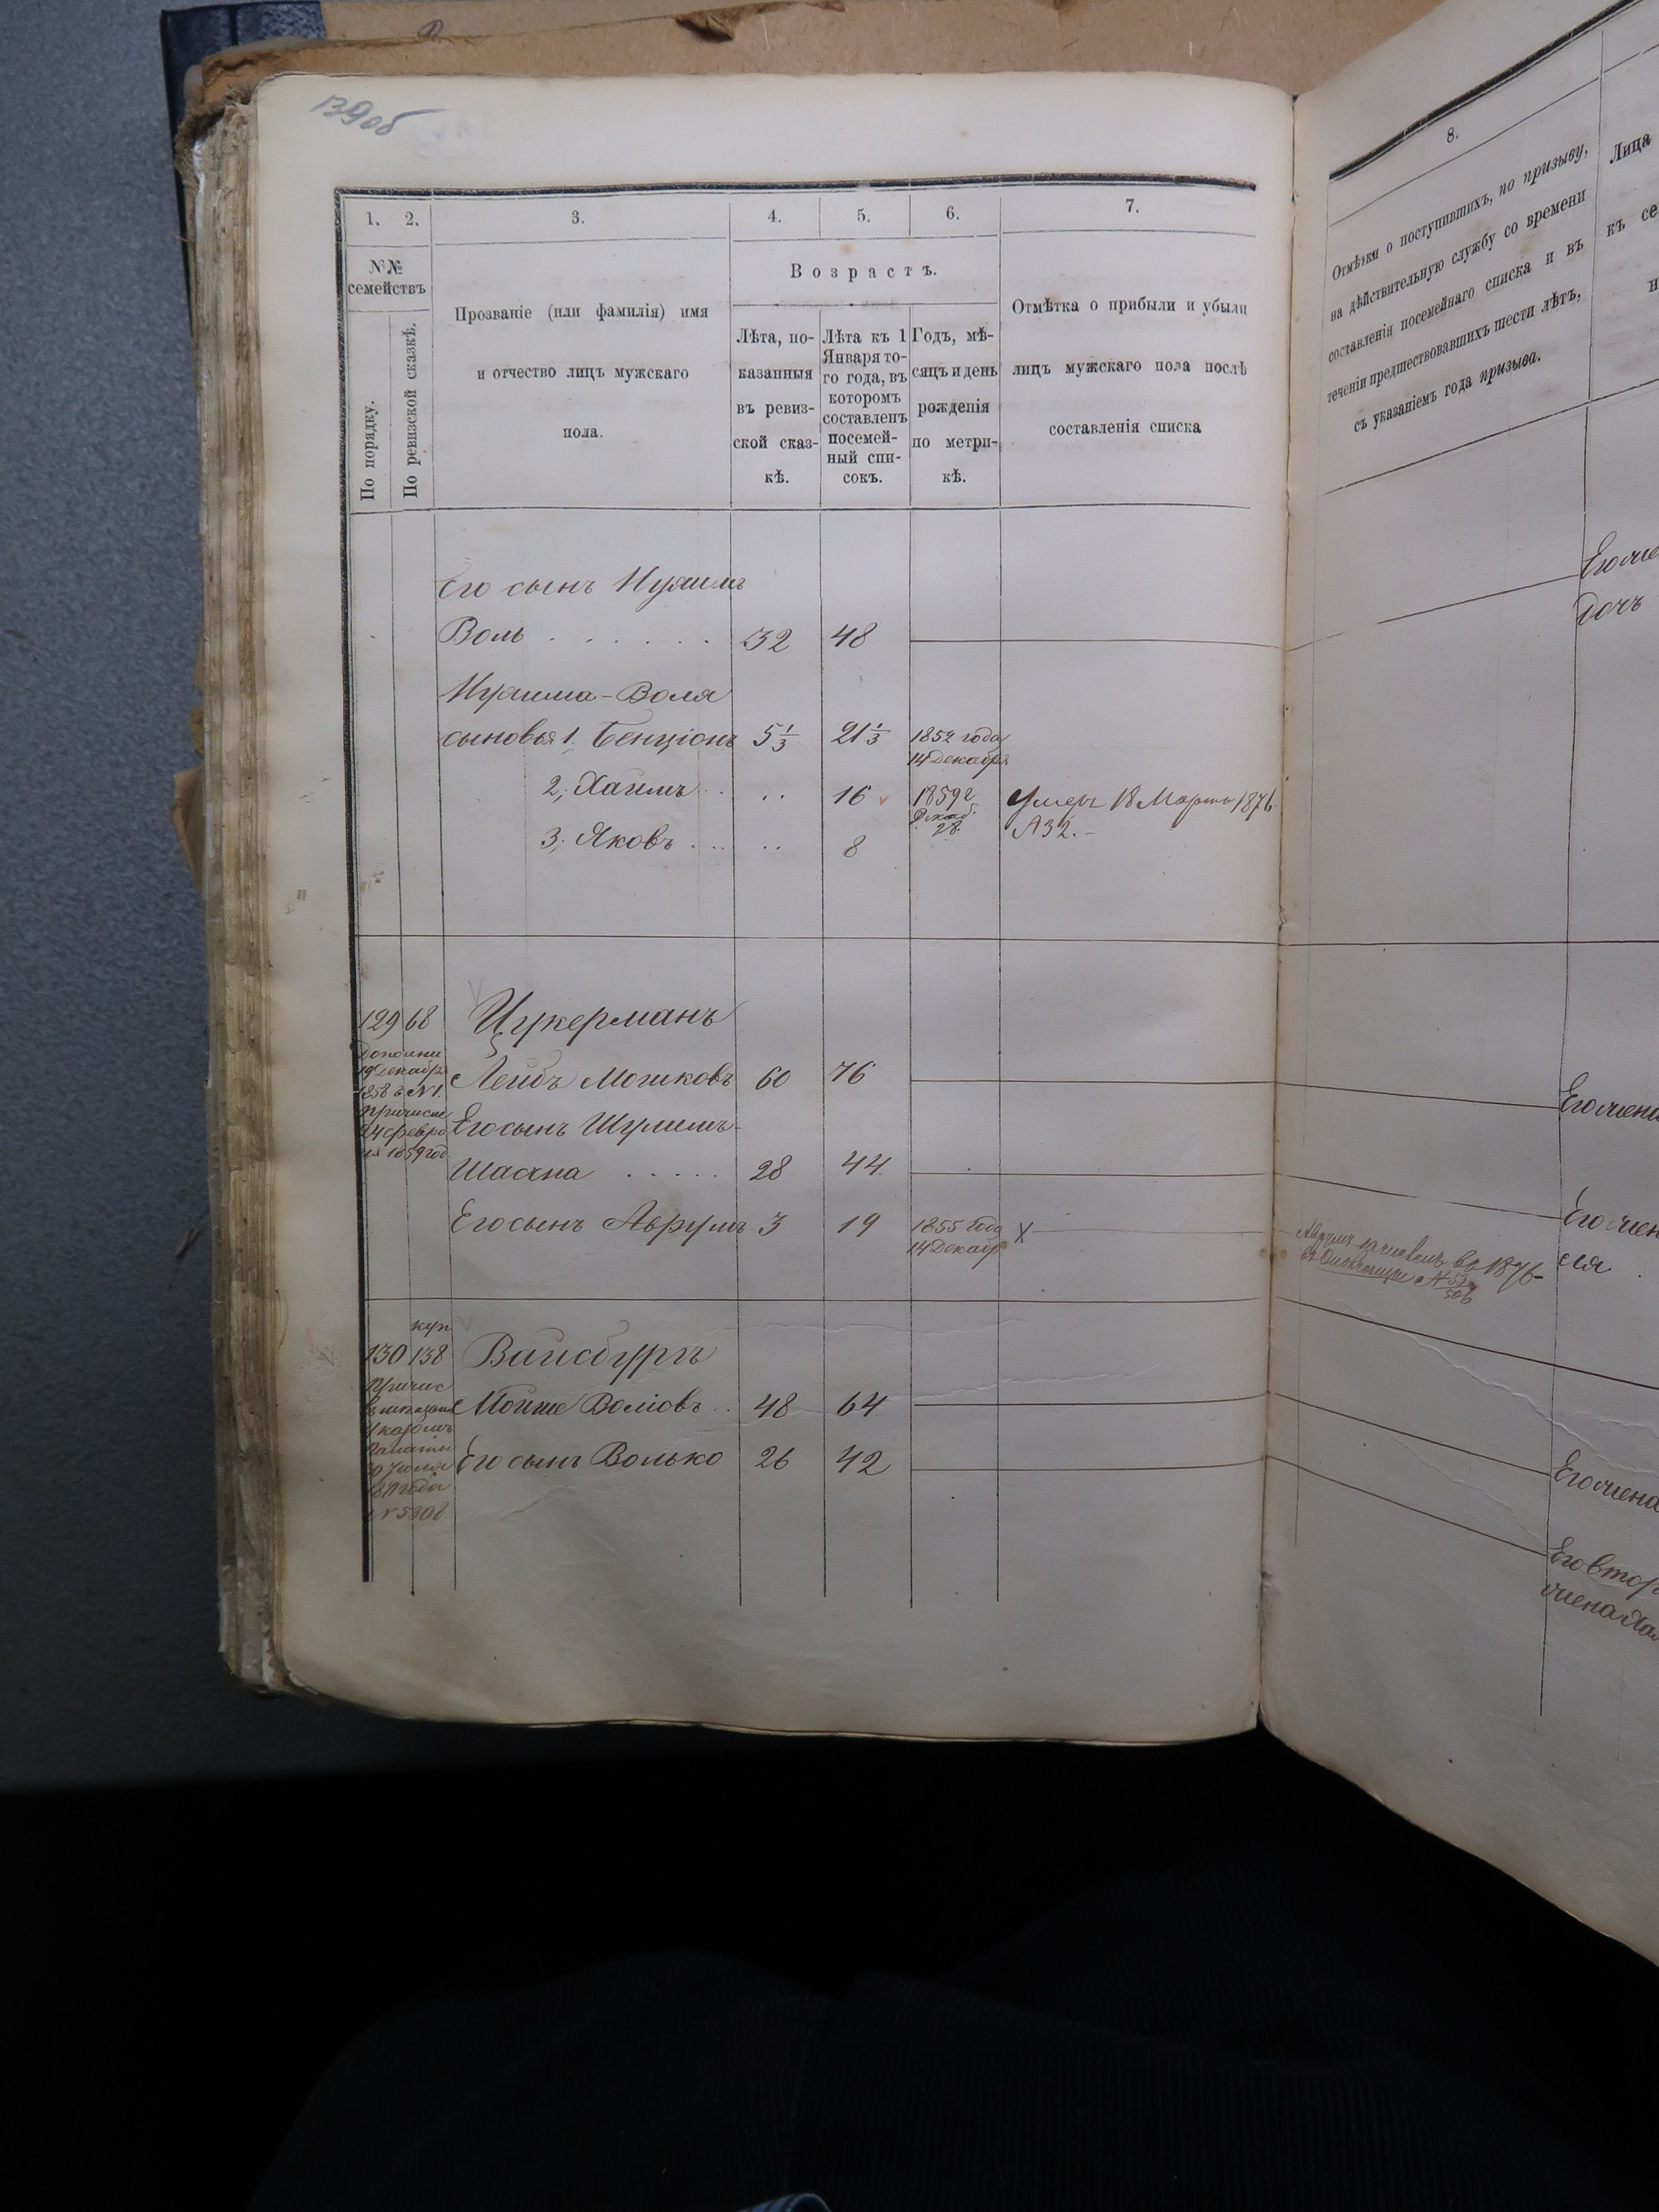 139об
1. 2. 3. 4. 5. 6. 7.
№№ семействъ
По порядку.
По ревизской сказкѣ.
Прозваніе (или фамилія) имя
и отчество лицъ мужскаго
пола.
Возрастъ.
Лѣта, по-
казанныя
въ ревиз-
ской сказ-
кѣ.
Лѣта къ 1
Января то-
го года, въ
которомъ
составленъ
посемей-
ный спи-
сокъ.
Годъ, мѣ-
сяцъ и день
рожденія
по метри-
кѣ.
Отмѣтка о прибыли и убыли
лицъ мужскаго пола послѣ
составленія списка
Его сынъ
Воль 32 48
Воля
сыновья 1. Бенціонъ 5 1/3 21 1/3 1852 года
14 Декабря
2, Хаимъ 16 1859 г. Умеръ 18 Марта 1876
Декаб. 28 № 32.
3, Яковъ 8
129 68 Цукерманъ
19 Декабря
1858 г. № 1.
Лейбъ Мошковъ 60 76
Его сынъ Шулимъ
24 Февра
ля 1859 год
28 44
Его сынъ Аврумъ 3 19 1855 года X
14 Декабр
куп
130 138 Вайсбургъ
Причис
Мойше Волковъ 48 64
Его сынъ Волько 26 42
Палаты
года
№ 5308
8.
Отмѣтки о поступившихъ, по призыву,
на дѣйствительную службу со времени
составленія посемейнаго списка и въ
теченіи предшествовавшихъ шести лѣтъ,
съ указаніемъ года призыва.
Лица
къ се
н
Его же
дочь
Его жена
Аврумъ въ 1876
Его жен
Его жена
Его втор
жена